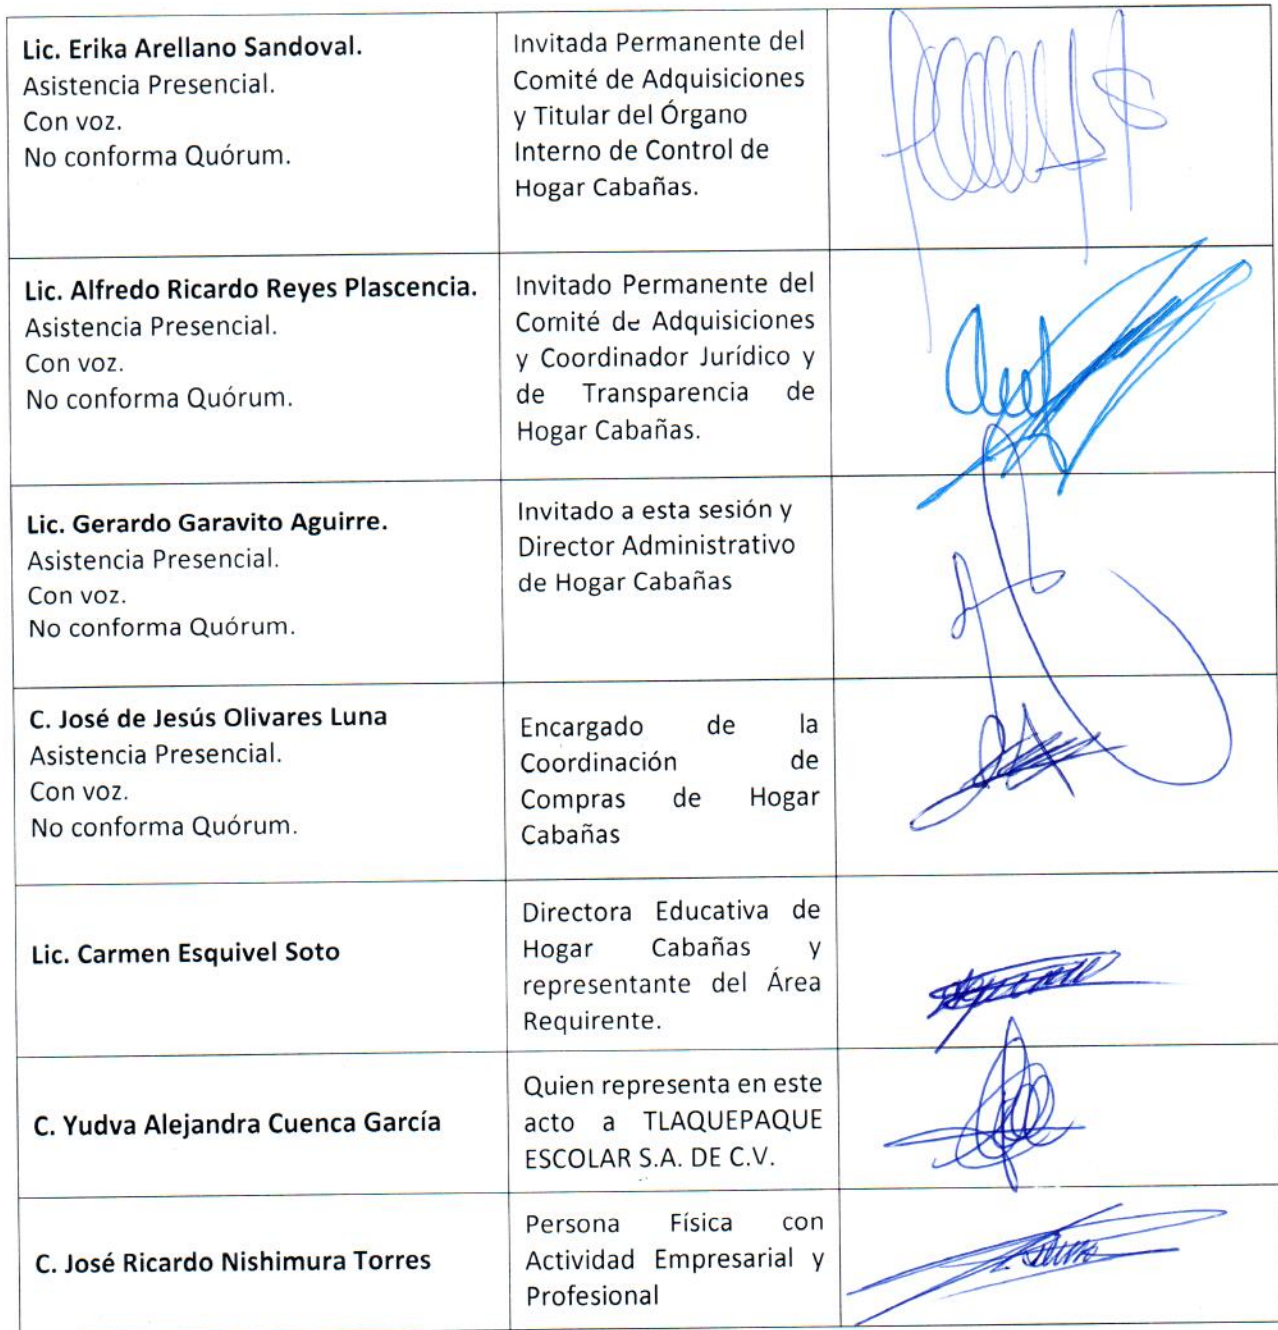 Lic. Erika Arellano Sandoval.
Asistencia Presencial.
Con voz.
No conforma Quórum.
Invitada Permanente del
Comité de Adquisiciones
y Titular del Órgano
Interno de Control de
Hogar Cabañas.
Lic. Alfredo Ricardo Reyes Plascencia.
Asistencia Presencial.
Con voz.
No conforma Quórum.
Invitado Permanente del
Comité de Adquisiciones
y Coordinador Jurídico y
de Transparencia de
Hogar Cabañas.
Lic. Gerardo Garavito Aguirre.
Asistencia Presencial.
Con voz.
No conforma Quórum.
Invitado a esta sesión y
Director Administrativo
de Hogar Cabañas
C. José de Jesús Olivares Luna
Asistencia Presencial.
Con voz.
No conforma Quórum.
Encargado de la
Coordinación de
Compras de Hogar
Cabañas
Lic. Carmen Esquivel Soto
Directora Educativa de
Hogar Cabañas y
representante del Área
Requirente.
C. Yudva Alejandra Cuenca García
Quien representa en este
acto a TLAQUEPAQUE
ESCOLAR S.A. DE C.V.
C. José Ricardo Nishimura Torres
Persona Física con
Actividad Empresarial y
Profesional